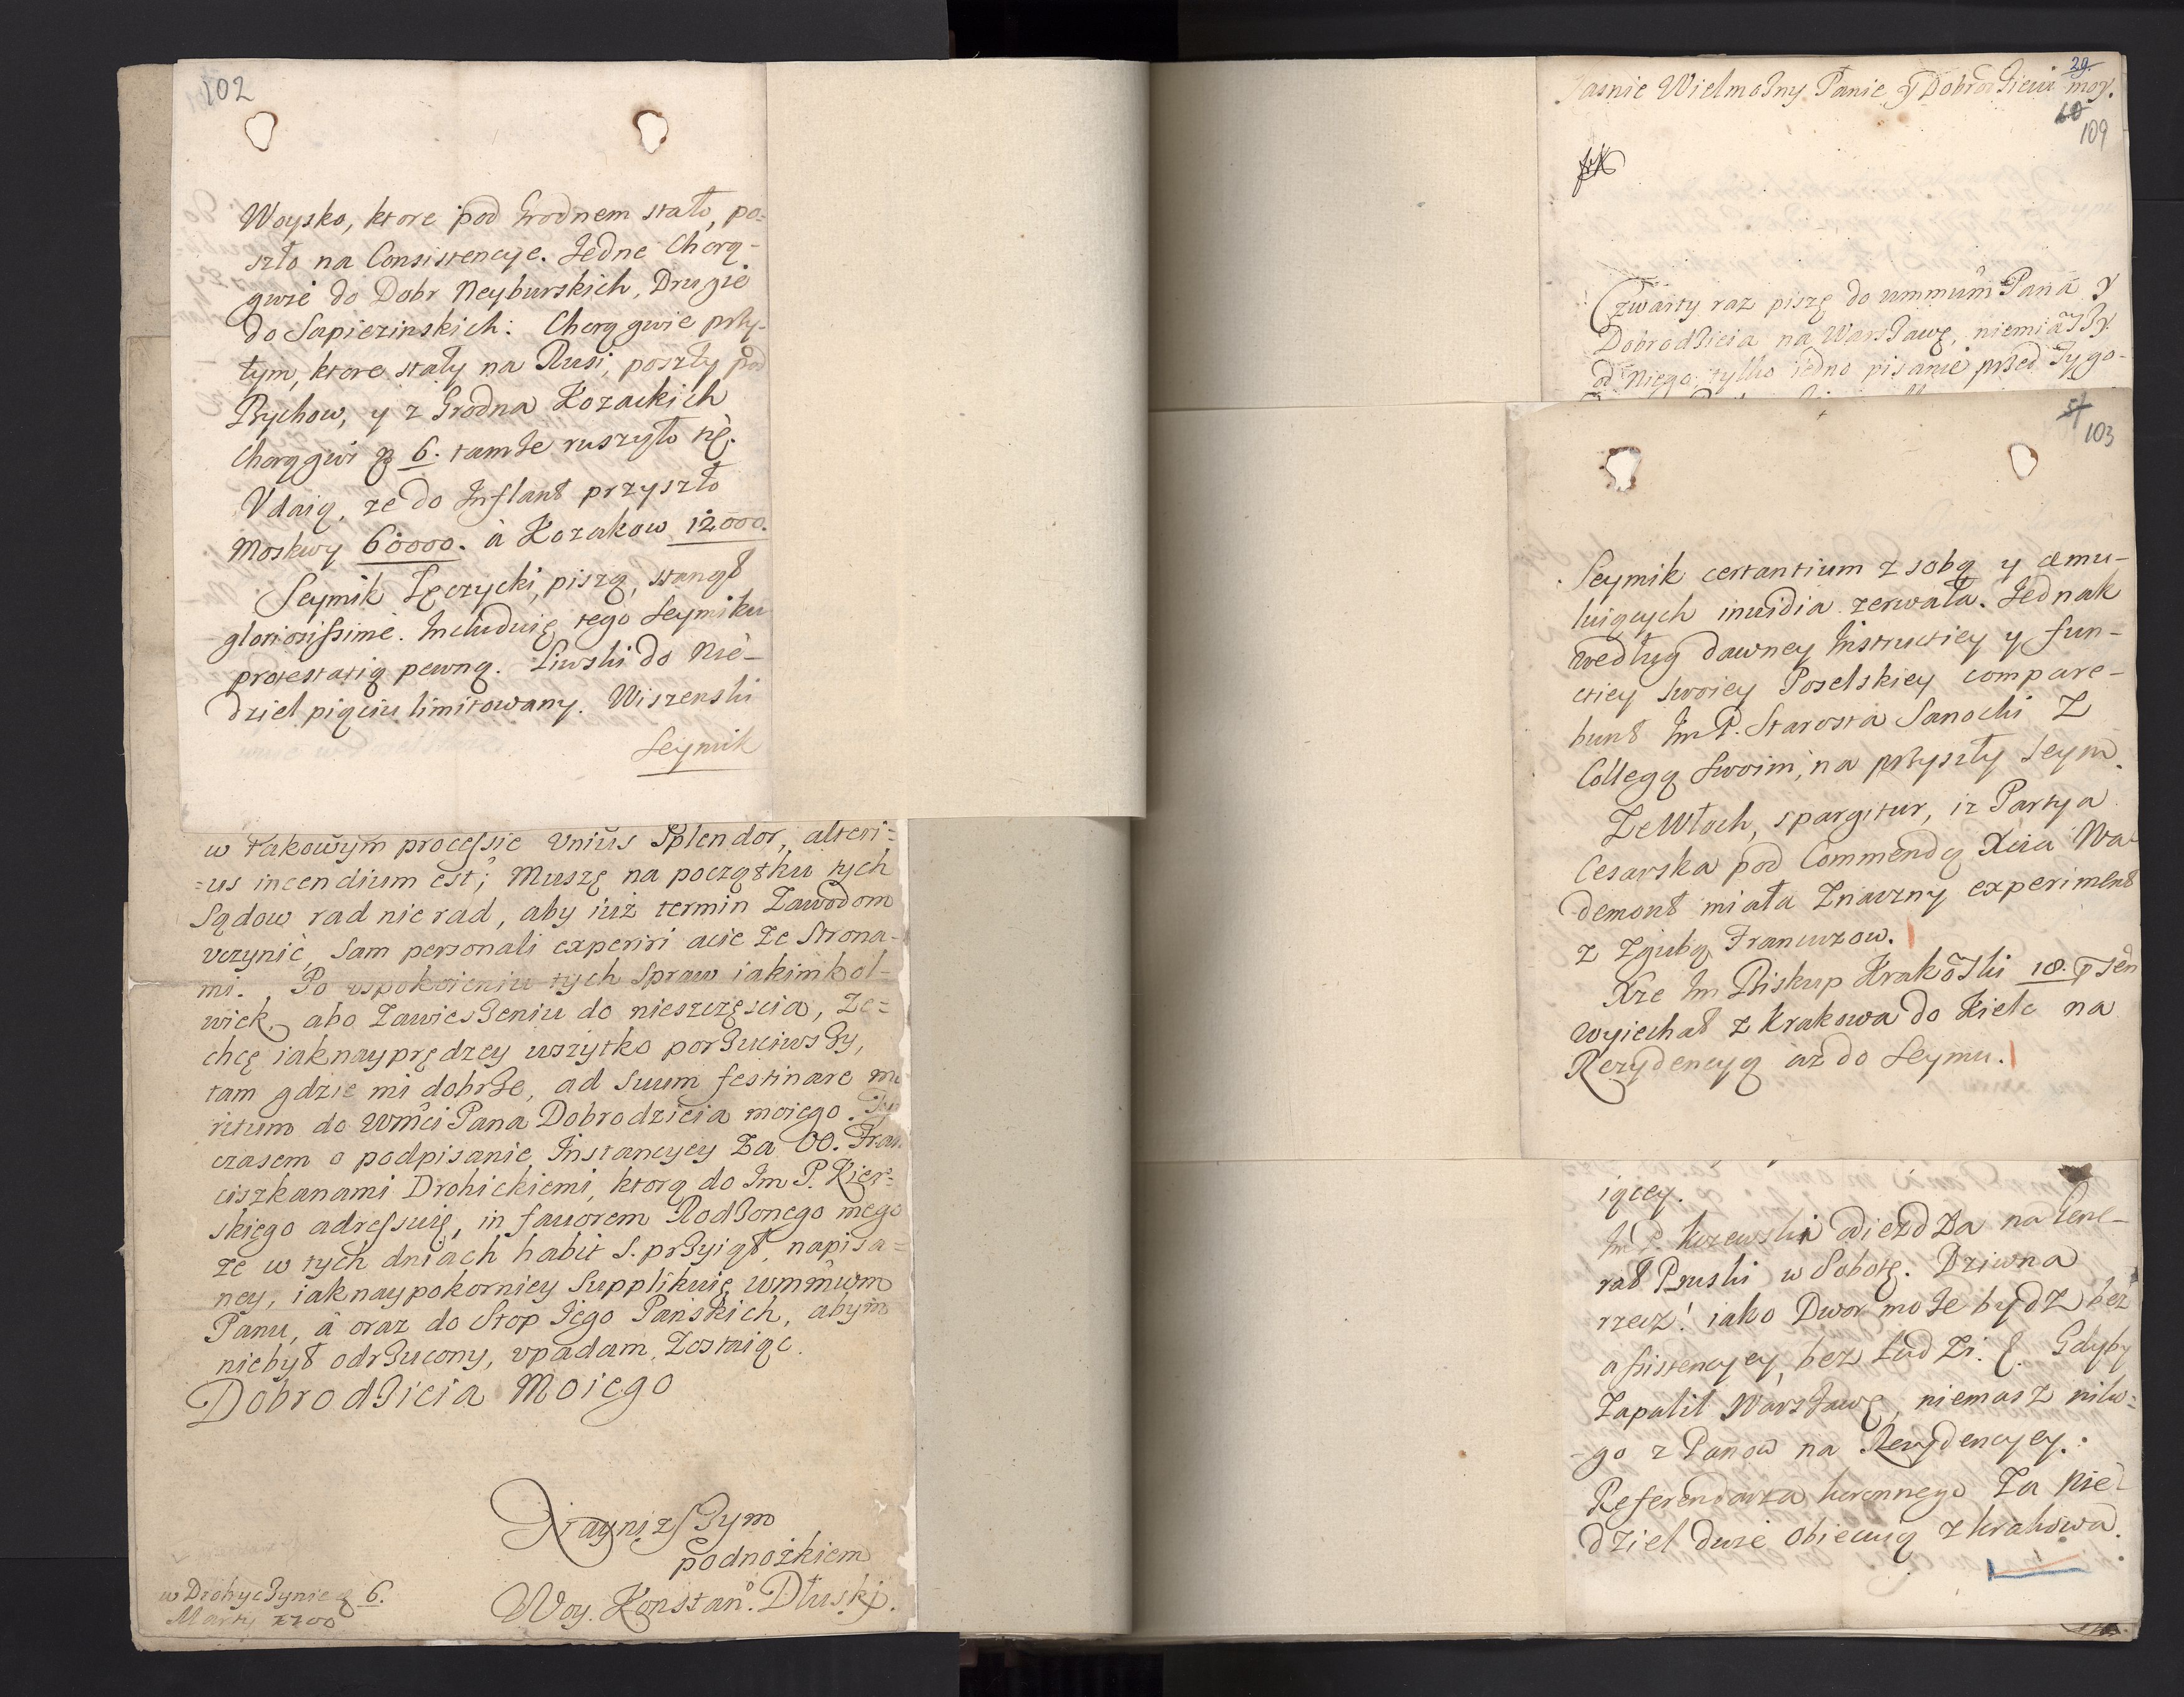 102
Woysko, ktore pod Grodnem stało, po=
szło na Consistencye. Jedne Chorą-
gwie do Dobr Neyburskich, Drugie
do Sapiezinskich: Chorągwie przy-
tym, ktore stały na Rusi, poszły pod
Bychow, y z Grodna Kozackich
Chorągwi 6. tamże ruszyło się.
Vdaią, ze do Inflant przyszło
Moskwy 60000. à Kozakow 12000.
Seymik Łęczycki, piszą, stanął
gloriosissime. Includuię tego Seymiku
protestatią pewną. Liwski do Nie-
dziel pięciu limitowany. Wiszenski
Seymik
w takowym processie Vnius Splendor, alteri=
=us incendium est; Muszę na początku tych
Sądow rad nie rad, aby iuż termin Zawodom
vczynić, Sam personali experiri acie ze Strona-
mi. Po uspokoieniu tych Spraw iakimkol-
wiek, abo Zawieszeniu do nieszczęscia, Ze=
chcę iaknayprędzey wszytko porzuciwszy,
tam gdzie mi dobrze, ad Suum festinare
ritum do Wmci Pana Dobrodzieia moiego.
czasem o podpisanie Instancyey Za OO. Fran
ciszkanami Drohickiemi, ktorą do Im P. Kier=
skiego adressuię, in fauorem Rodzonego mego
że w tych dniach habit S. przyiął, napisa=
ney, iaknaypokorniey Supplikuię wmmwm
Panu, â oraz do Stop Jego Pańskich, abym
niebył odrzucony, vpadam, Zostaiąc.
Dobrodzieia Moiego
Nayniższym
podnożkiem
Woy. Konstan. Dłuski.
w Drohyczynie 6.
Marty 1700
Jasnie Wielmożny Panie y Dobrodzieiu moy.
29.
109
Czwarty raz piszę do ummum Pana y
Dobrodzieia na Warszawę, niemiawszy
od Niego tylko iedno pisanie przed Tygo-
51
103
Seymik certantium z sobą y æmu-
luiących inuidia zerwała. Jednak
według dawney Instructiey y fun-
ctiey swoiey Poselskiey compare-
bunt Im P. Starosta Sanocki Z
Collegą Swoim, na przyszły Seym.
Ze Włoch, spargitur, iz Partya
Cesarska pod Commendą Xcia Wa-
demont miała Znaczny experiment
z Zgubą Francuzow.
Xże Im Biskup Krakowski 18. psen
Wyiechał z Krakowa do Kielc na
Rezydencyą aż do Seymu.
iącey.
Im P. odiezdża na Gene-
rał Pruski w Sobotę. Dziwna
rzecz! iako Dwor może bydz bez
assistencyey, bez Ludzi. Gdyby
Zapalił Warszawę, niemasz niko=
-go z Panow na Rezydencyey.
Referendarza koronnego Za Nie-
dziel dwie obiecuią z Krakowa.